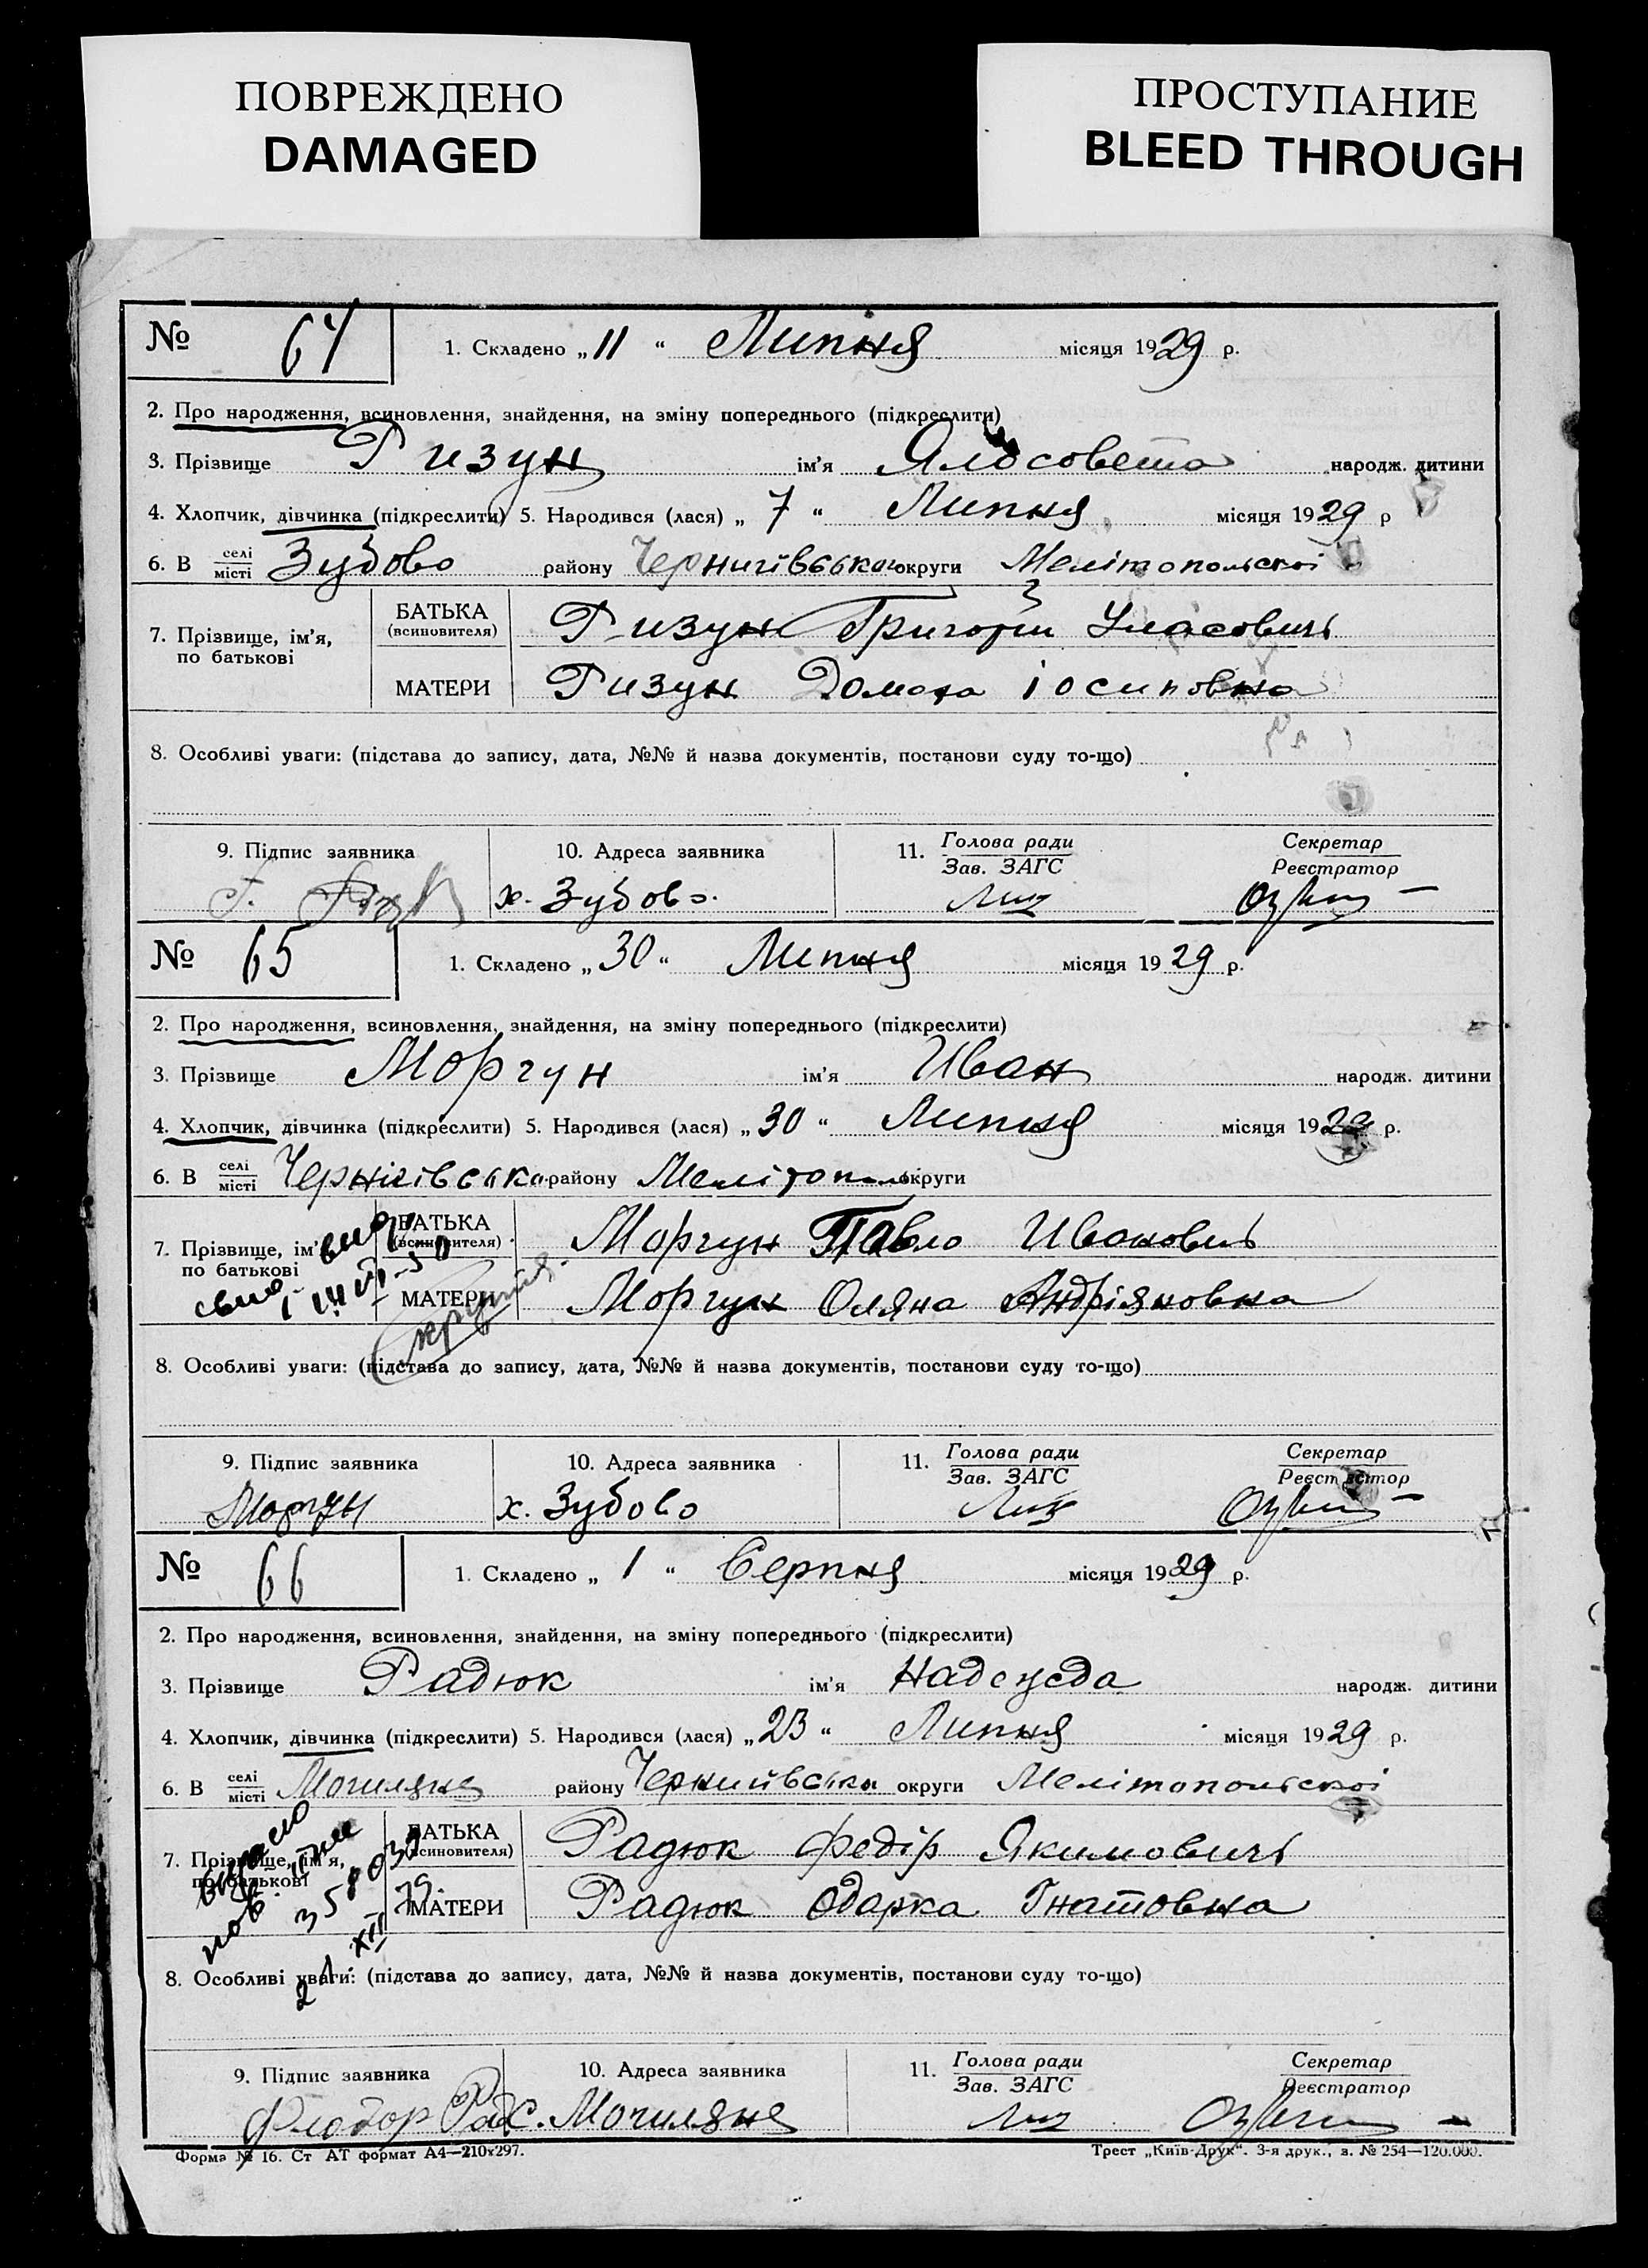 ПОВРЕЖДЕНО
DAMAGED
ПРОСТУПАНИЕ
BLEED THROUGH
№ 64 1. Складено „11“ Липня місяця 1929 р.
2. Про народження, всиновлення, знайдення, на зміну попереднього (підкреслити)
3. Прізвище Ризун ім'я Ялосовета народж. дитини
4. Хлопчик, дівчинка (підкреслити) 5. Народився (лася) „7“ Липня місяця 1929 р
6. В селі місті Зубово району округи Мелітопольскоі
7. Прізвище, ім'я, по батькові
БАТЬКА (всиновителя) Ризун Григорій Уласовичь
МАТЕРИ Ризун Домаха іосиповна
8. Особливі уваги: (підстава до запису, дата, №№ й назва документів, постанови суду то-що)
9. Підпис заявника 10. Адреса заявника 11. Голова ради Зав. ЗАГС Секретар Реєстратор
х. Зубово.
№ 65 1. Складено „30“ Липня місяця 1929 р.
2. Про народження, всиновлення, знайдення, на зміну попереднього (підкреслити)
3. Прізвище Моргун ім'я Иван народж. дитини
4. Хлопчик, дівчинка (підкреслити) 5. Народився (лася) „30“ Липня місяця 1929 р.
6. В селі місті району округи
7. Прізвище, ім'я по батькові
БАТЬКА (всиновителя) Моргун Павло Ивановичь
МАТЕРИ Моргун Оляна Андріяновна
8. Особливі уваги: (підстава до запису, дата, №№ й назва документів, постанови суду то-що)
9. Підпис заявника 10. Адреса заявника 11. Голова ради Зав. ЗАГС Секретар Реєстратор
Моргун х. Зубово
№ 66 1. Складено „1“ Серпня місяця 1929 р.
2. Про народження, всиновлення, знайдення, на зміну попереднього (підкреслити)
3. Прізвище Радюк ім'я народж. дитини
4. Хлопчик, дівчинка (підкреслити) 5. Народився (лася) „23“ Липня місяця 1929 р.
6. В селі місті Могиляне району округи Мелітопольскоі
7. Прізвище, ім'я, по батькові
БАТЬКА (всиновителя) Радюк Федір Якимовичь
МАТЕРИ Радюк Одарка Гнатовна
8. Особливі уваги: (підстава до запису, дата, №№ й назва документів, постанови суду то-що)
9. Підпис заявника 10. Адреса заявника 11. Голова ради Зав. ЗАГС Секретар Реєстратор
С. Могиляне
Форма № 16. Ст АТ формат А4—210х297. Трест „Київ-Друк“. 3-я друк., з. № 254—120.000.